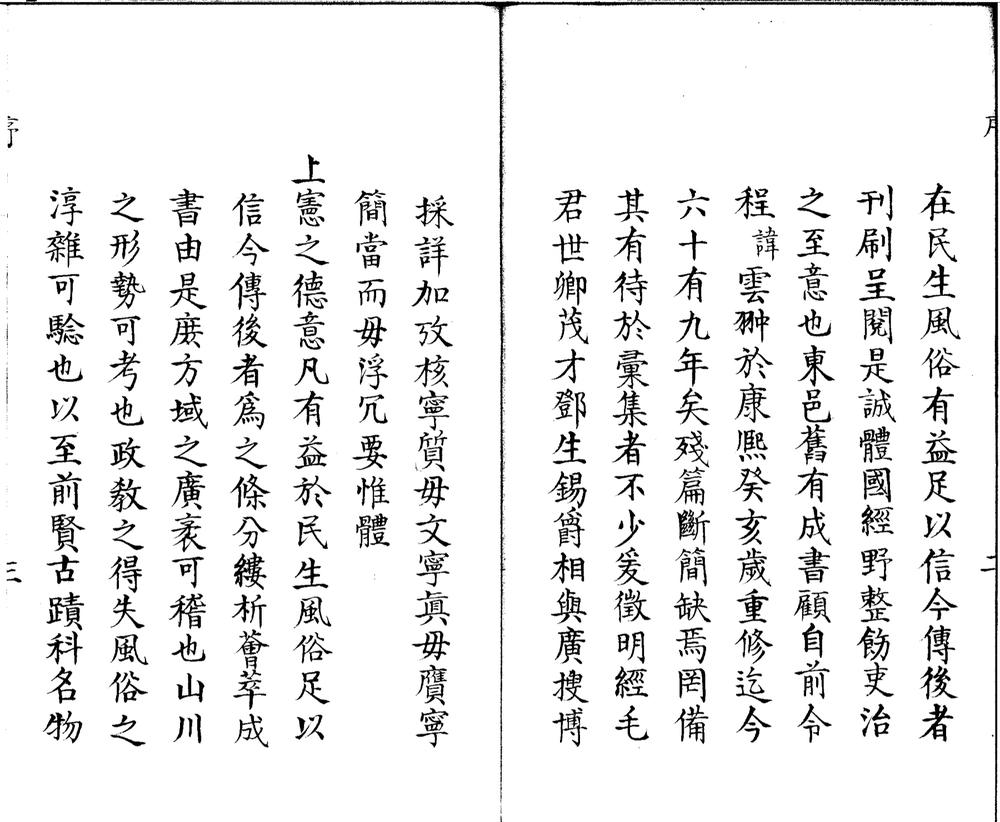 在民生風俗有益足以信今傳後者
刊刷呈閱是誠體國經野整飭吏治
之至意也東邑舊有成書顧自前令
程諱雲翀於康熙癸亥歲重修迄今
六十有九年矣殘篇斷簡缺焉罔備
其有待於彙集者不少爰徵明經毛
君世卿茂才鄧生錫爵相與廣搜博
二
採詳加攷核寧質毋文寧真毋贗寧
簡當而毋浮冗要惟體
上憲之德意凡有益於民生風俗足以
信今傳後者為之條分縷析薈萃成
書由是庻方域之廣袤可稽也山川
之形勢可考也政教之得失風俗之
淳雜可騐也以至前賢古蹟科名物
序
三